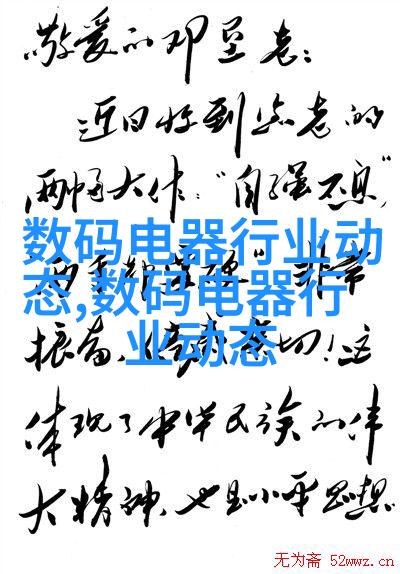 敬爱的邓垦老:
近日收到您老的
两幅大作:"自强不息"
数码电器行业动
态,数码电器行
业动态
非常
振奋、
切!这
体现了中华民族的伟
大精神,也是小平思想
无为斋 52wwz.cn